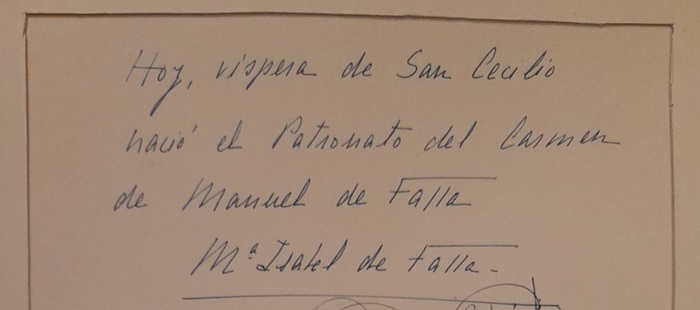 Hoy, vispera de San Cecilio
nació el Patronato del Carmen
de Manuel de Falla
Mª Isabel de Falla.-